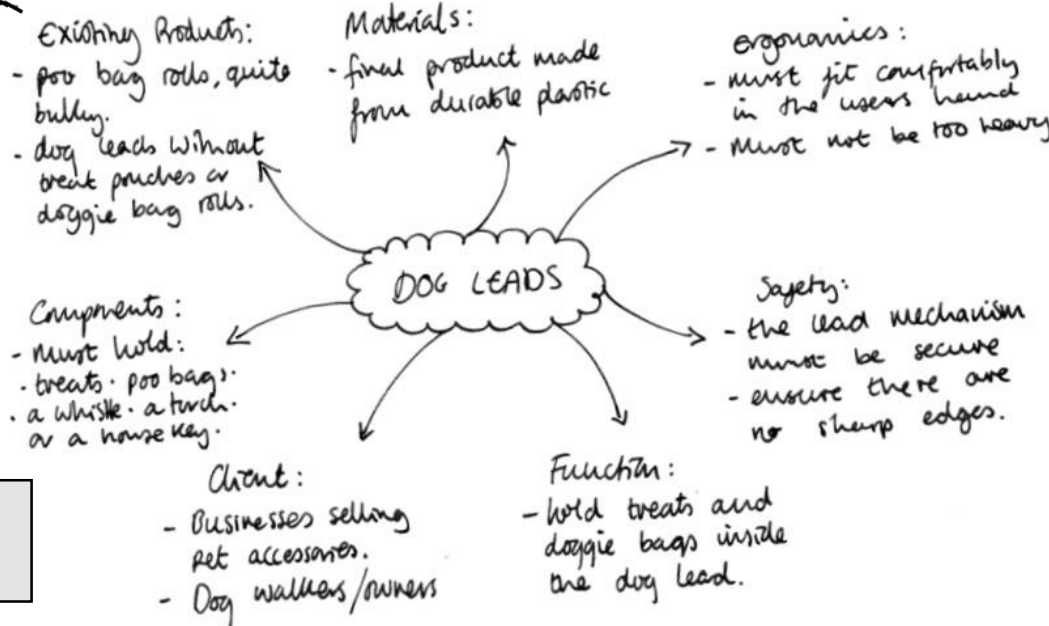 Existing Products:
- poo bag rolls, quite
bulky.
- dog leads without
treat pouches or
doggie bag rolls.
Materials:
- final product made
from durable plastic
ergonomics:
- must fit comfortably
in the users hand
- Must not be too heavy
DOG LEADS
Components:
- Must hold:
· treats · poo bags ·
· a whistle · a torch ·
or a house key.
Safety:
- the lead mechanism
must be secure
- ensure there are
no sharp edges.
Client:
- Businesses selling
pet accessories.
- Dog walkers/owners
Function:
- hold treats and
doggie bags inside
the dog lead.